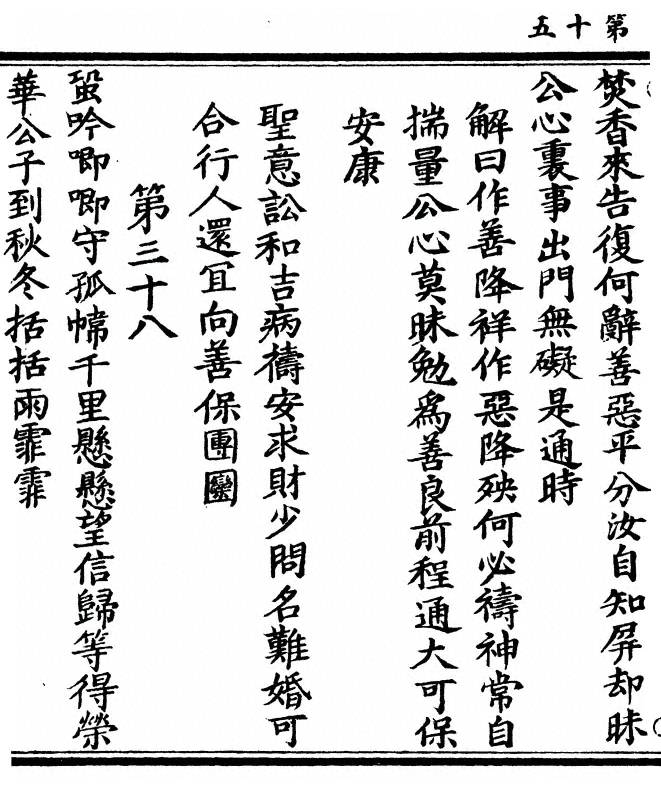 第十五
焚香來告復何辭善惡平分汝自知屏却昧
公心裏事出門無礙是通時
解曰作善降祥作惡降殃何必禱神常自
揣量公心莫昧勉為善良前程通大可保
安康
聖意訟和吉病禱安求財少問名難婚可
合行人還冝向善保團圞
第三十八
蛩吟唧唧守孤幃千里懸懸望信歸等得榮
華公子到秋冬括括雨霏霏